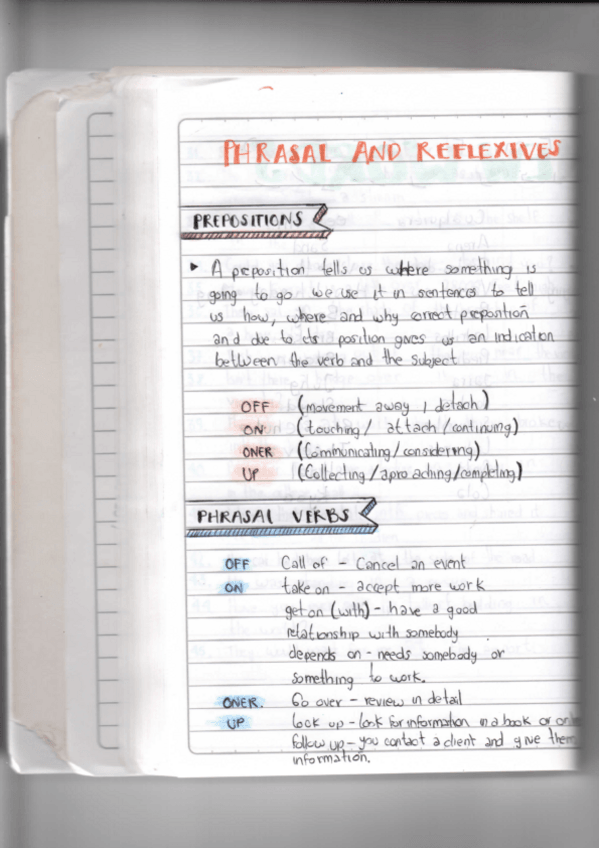 PHRASAL AND REFLEXIVES
PREPOSITIONS
▸ A preposition tells us where something is
going to go we use it in sentences to tell
us how, where and why correct preposition
and due to its position gives us an indication
between the verb and the subject
OFF (movement away / detach)
ON (touching / attach / continuing)
ONER (Communicating / considering)
UP (Collecting / aproaching / completing)
PHRASAL VERBS
OFF Call of - Cancel an event
ON take on - accept more work
get on (with) - have a good
relationship with somebody
depends on - needs somebody or
something to work.
ONER. Go over - review in detail
UP look up - look for information in a book or
follow up - you contact a client and give them
information.